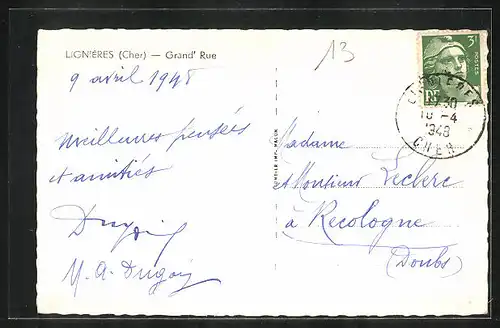 LIGNIÈRES (Cher) — Grand' Rue
9 avril 1948
meilleures pensées
et amitiés
13
3F
POSTES
RF
LIGNIERES
10 -4
1948
CHER
Madame
et Monsieur Leclerc
à Recologne
(Doubs)